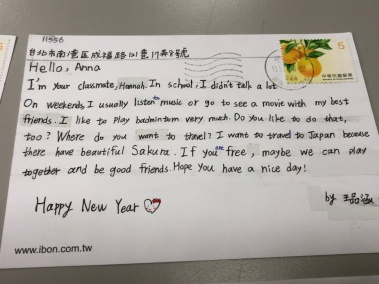 11556
台北市南港區成福路121巷17弄8號
5
中華民國郵票
Hello, Anna
I'm your classmate, Hannah. In school, I didn't talk a lot
On weekends, I usually listen to music or go to see a movie with my best
friends. I like to play badminton very much. Do you like to do that,
too? Where do you want to travel? I want to travel to Japan because
there have beautiful Sakura. If you are free, maybe we can play
together and be good friends. Hope you have a nice day!
Happy New Year
by 王品涵
www.ibon.com.tw